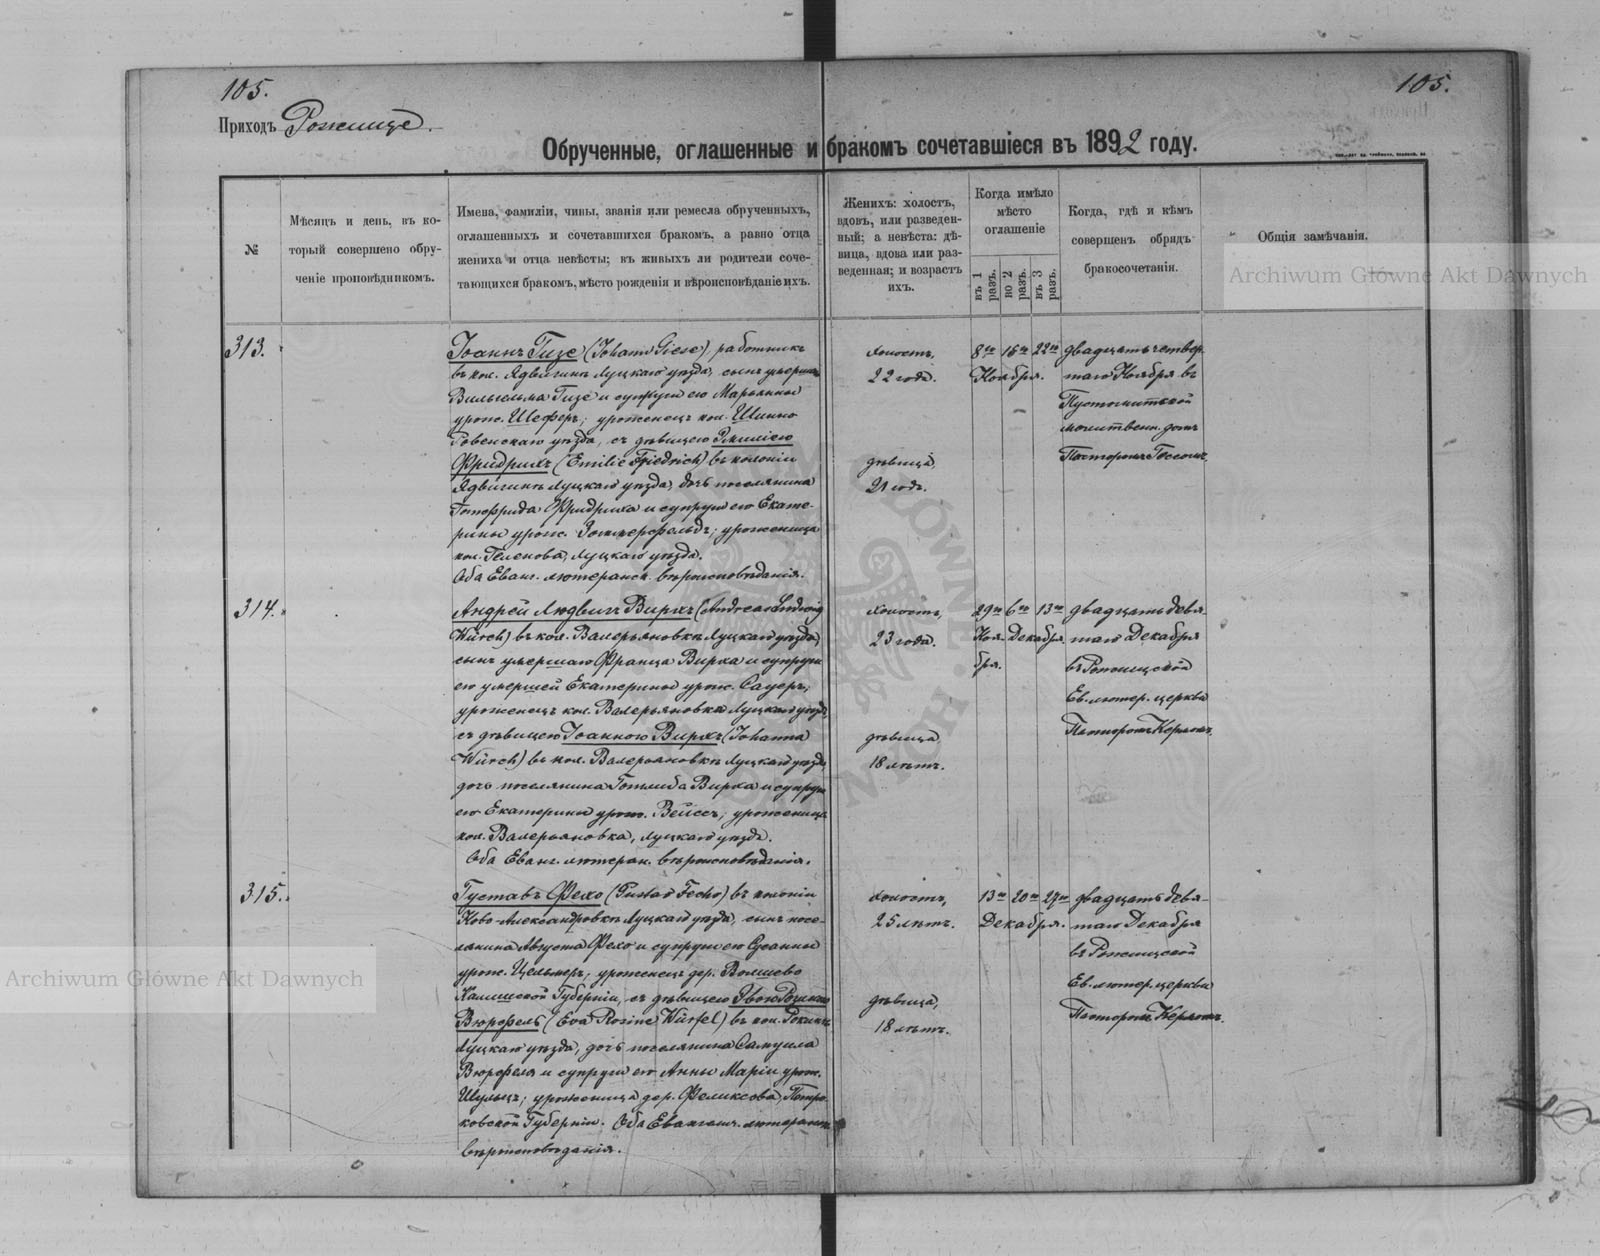 105.
105.
Приходъ Рожище.
Обрученные, оглашенные и бракомъ сочетавшіеся въ 1892 году.
№
Мѣсяцъ и день, въ ко-
торый совершено обру-
ченіе проповѣдникомъ.
Имена, фамиліи, чины, званія или ремесла обрученныхъ,
оглашенныхъ и сочетавшихся бракомъ, а равно отца
жениха и отца невѣсты; въ живыхъ ли родители соче-
тающихся бракомъ, мѣсто рожденія и вѣроисповѣданіе ихъ.
Женихъ: холостъ,
вдовъ, или разведен-
ный; а невѣста: дѣ-
вица, вдова или раз-
веденная; и возрастъ
ихъ.
Когда имѣло
мѣсто
оглашеніе
въ 1 разъ.
во 2 разъ.
въ 3 разъ.
Когда, гдѣ и кѣмъ
совершенъ обрядъ
бракосочетанія.
Общія замѣчанія.
313.
Іоаннъ Гизе (Johann Giese) работникъ
въ кол. Ядвигинъ Луцкаго уѣзда, сынъ умерш.
Вильгельма Гизе и супруги его Марьянны
урож. Шеферъ; уроженецъ кол. Шинно
Ровенскаго уѣзда, съ дѣвицею Эмиліею
Фридрихъ (Emilie Friedrich) въ колоніи
Ядвигинъ Луцкаго уѣзда, дочь поселянина
Готфрида Фридриха и супруги его Екате-
рины урож. Зоммерфельдъ; уроженица
кол. Геленова, Луцкаго уѣзда.
Оба Еванг. лютеранск. вѣроисповѣданія.
холостъ,
22 года.
дѣвица,
21 годъ.
8го 15го 22го
Ноября.
двадцать четвер-
таго Ноября въ
Пустомытской
молитвенн. домѣ
Пасторомъ
314.
Андрей Людвигъ Вирхъ (Andreas Ludwig
Würch) въ кол. Валерьяновкѣ Луцкаго уѣзда,
сынъ умершаго Франца Вирха и супруги
его умершей Екатерины урож. Сауеръ;
уроженецъ кол. Валерьяновка Луцкаго уѣзда,
съ дѣвицею Іоанною Вирхъ (Johanna
Würch) въ кол. Валерьяновкѣ Луцкаго уѣзда,
дочь поселянина Готлиба Вирха и супруги
его Екатерины урож. Вейссъ; уроженица
кол. Валерьяновка, Луцкаго уѣзда.
Оба Еванг. лютеран. вѣроисповѣданія.
холостъ,
23 года.
дѣвица
18 лѣтъ.
29го 6го 13го
Ноя- Декабря.
бря.
двадцать девя-
таго Декабря
въ Рожищской
Ев. лютер. церкви
Пасторомъ Керномъ.
315.
Густавъ Фехо (Gustav Fecho) въ колоніи
Ново-Александровкѣ Луцкаго уѣзда, сынъ посе-
лянина Августа Фехо и супруги его Сусанны
урож. Цельмеръ; уроженецъ дер. Волшево
Калишской Губерніи, съ дѣвицею Эвою Розиною
Вюрфель (Eva Rosine Würfel) въ кол.
Луцкаго уѣзда, дочь поселянина Самуила
Вюрфеля и супруги его Анны Маріи урож.
Шульцъ; уроженица дер. Феликсова, Петро-
ковской Губерніи. Оба Евангелич. лютеранск.
вѣроисповѣданія.
холостъ,
25 лѣтъ.
дѣвица,
18 лѣтъ.
13го 20го 27го
Декабря.
двадцать девя-
таго Декабря
въ Рожищской
Ев. лютер. церкви
Пасторомъ Керномъ.
Archiwum Główne Akt Dawnych
Archiwum Główne Akt Dawnych